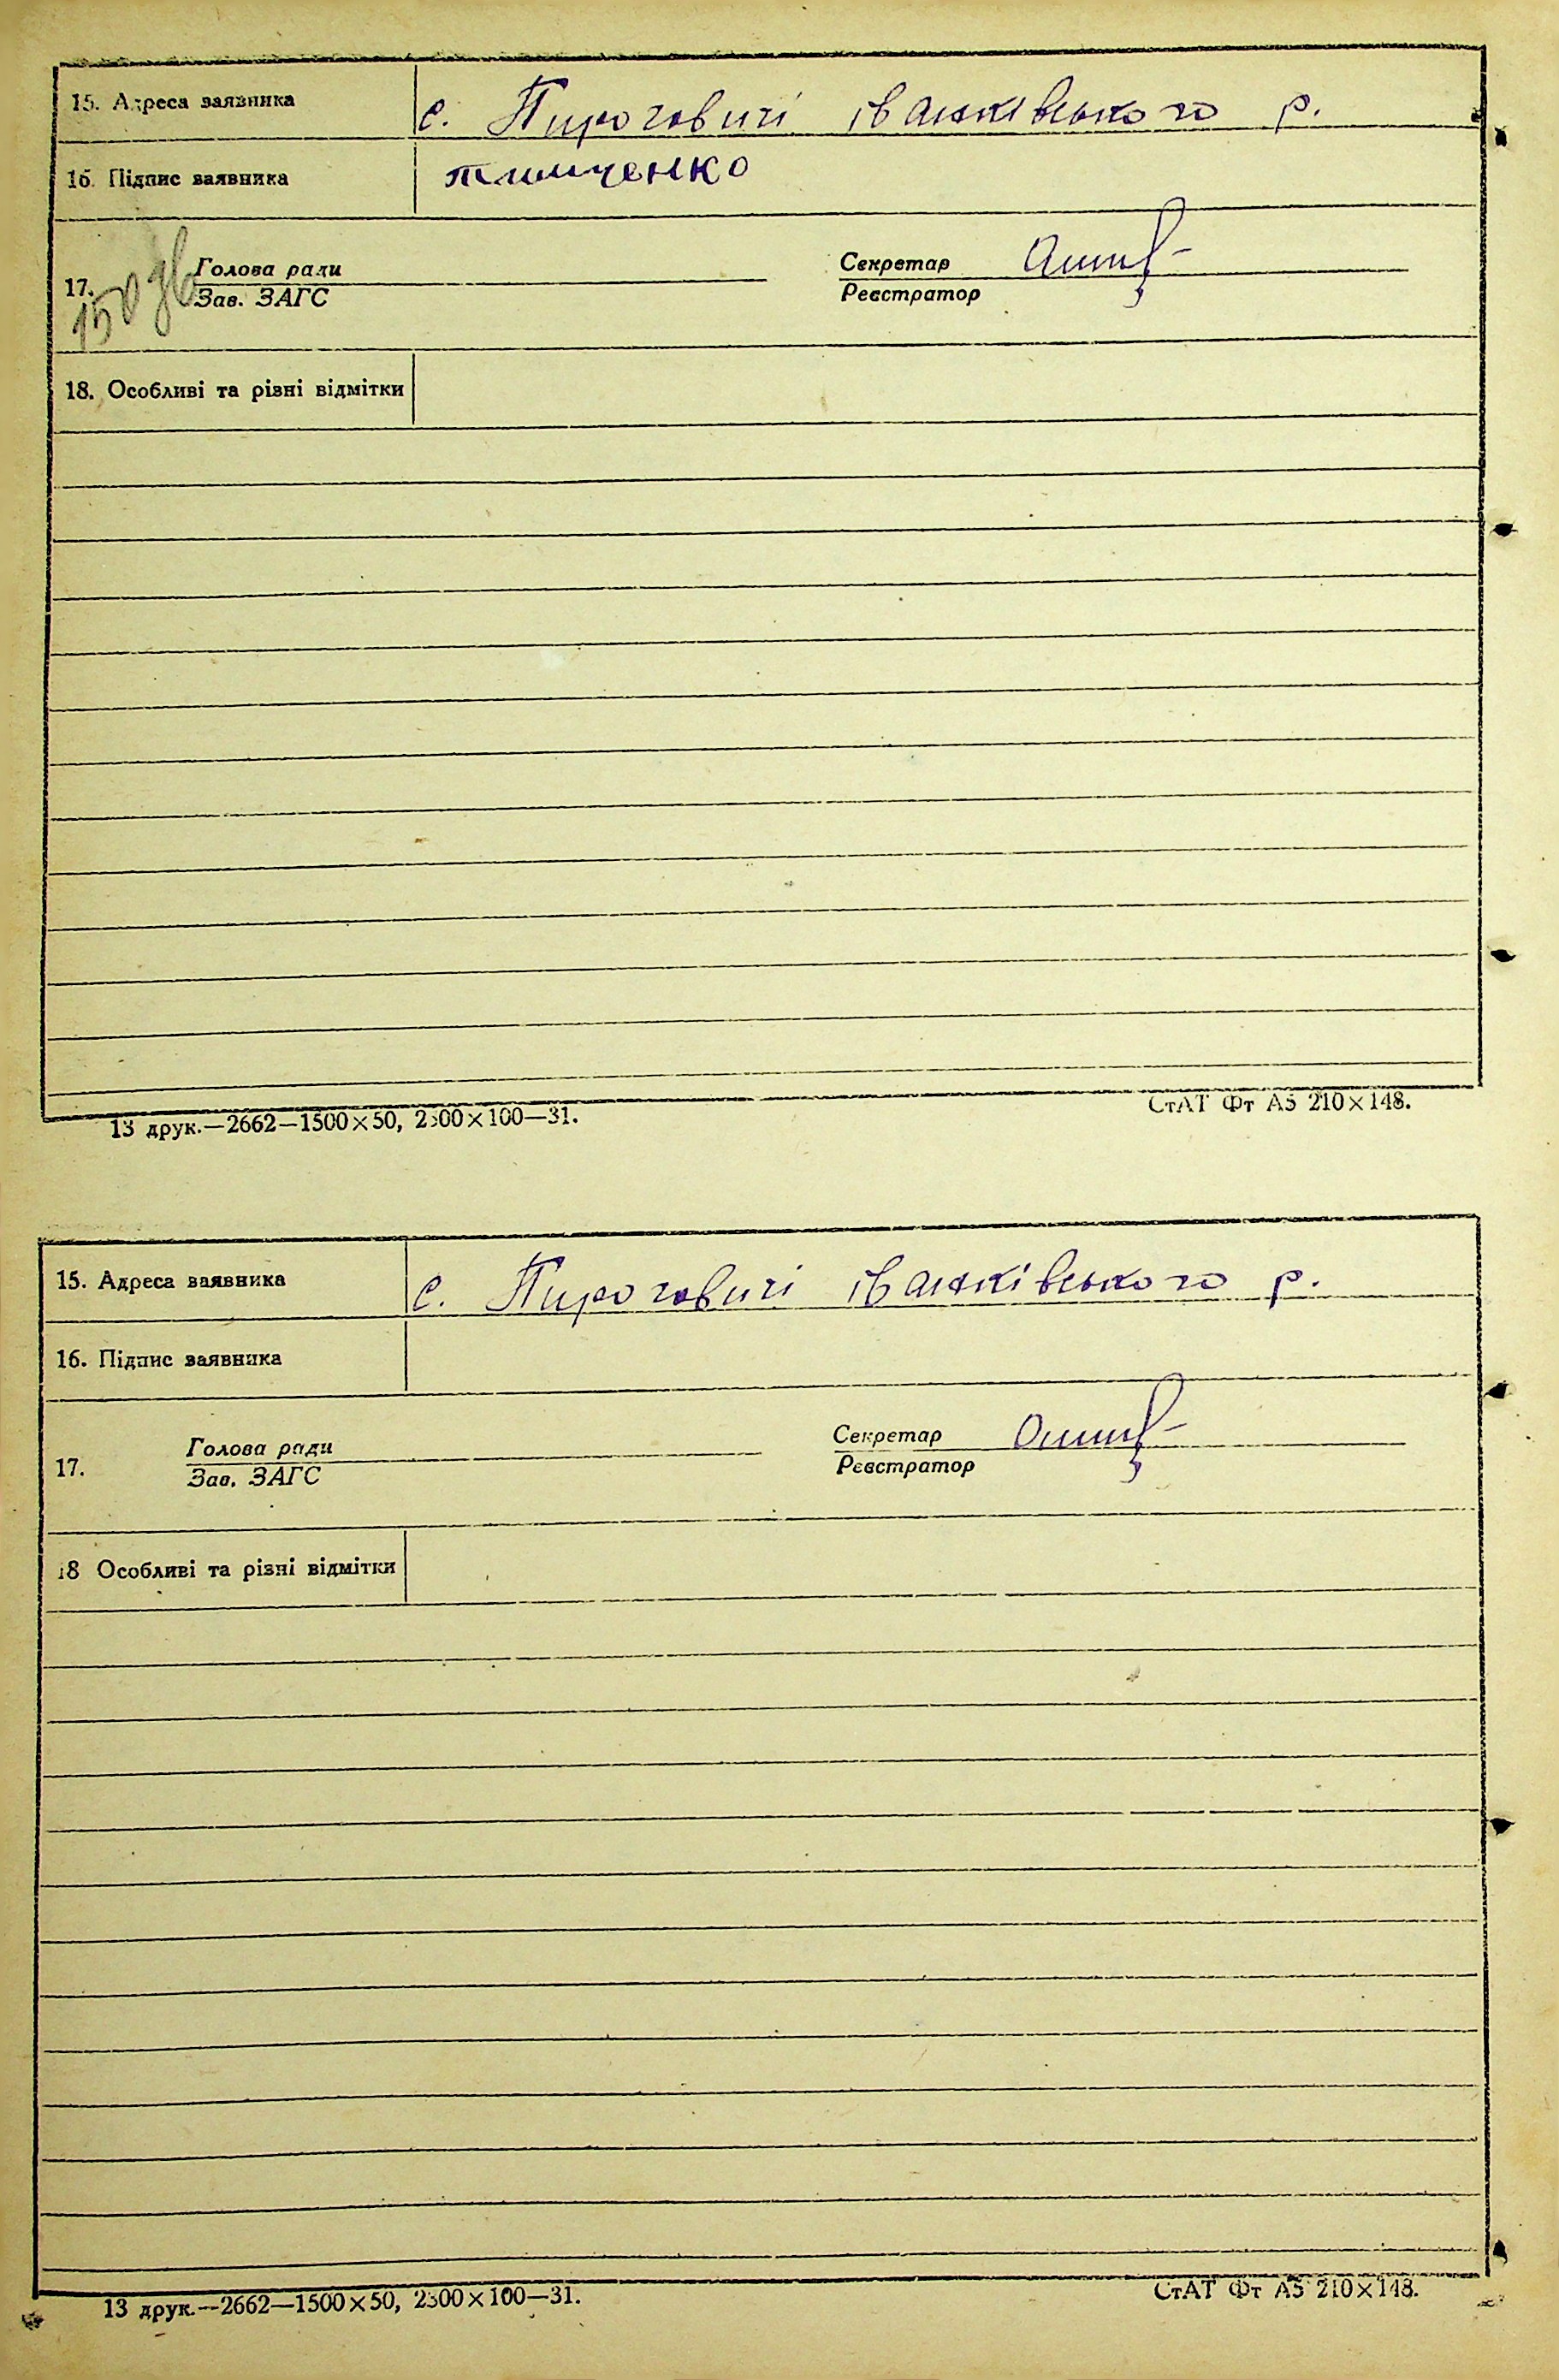 15. Адреса заявника с. Пироговичі іванківського р.
16. Підпис заявника тимченко
150 зв
17. Голова ради Секретар
Зав. ЗАГС Реєстратор
18. Особливі та різні відмітки
13 друк.—2662—1500×50, 2300×100—31. СтАТ Фт А5 210×148.
15. Адреса заявника с. Пироговичі іванківського р.
16. Підпис заявника
17. Голова ради Секретар
Зав. ЗАГС Реєстратор
18 Особливі та різні відмітки
13 друк.—2662—1500×50, 2300×100—31. СтАТ Фт А5 210×148.